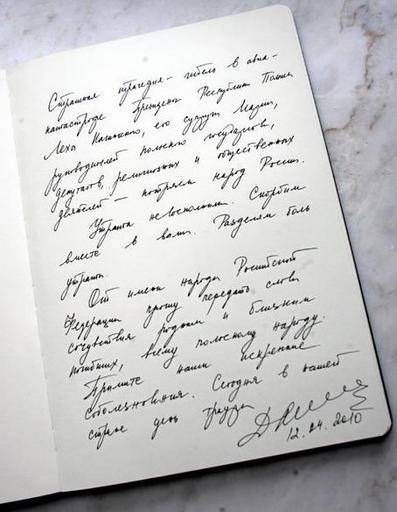 Страшная трагедия – гибель в авиа-
катастрофе Президента Республики Польша
Леха Качинского, его супруги Марии,
руководителей польского государства,
депутатов, религиозных и общественных
деятелей – потрясла народ России.
Утрата невосполнима. Скорбим
вместе с вами. Разделяем боль
утраты
От имени народа Российской
Федерации прошу передать слова
сочувствия родным и близким
погибших, всему польскому народу.
Примите наши искренние
соболезнования. Сегодня в нашей
стране день траура
12.04.2010